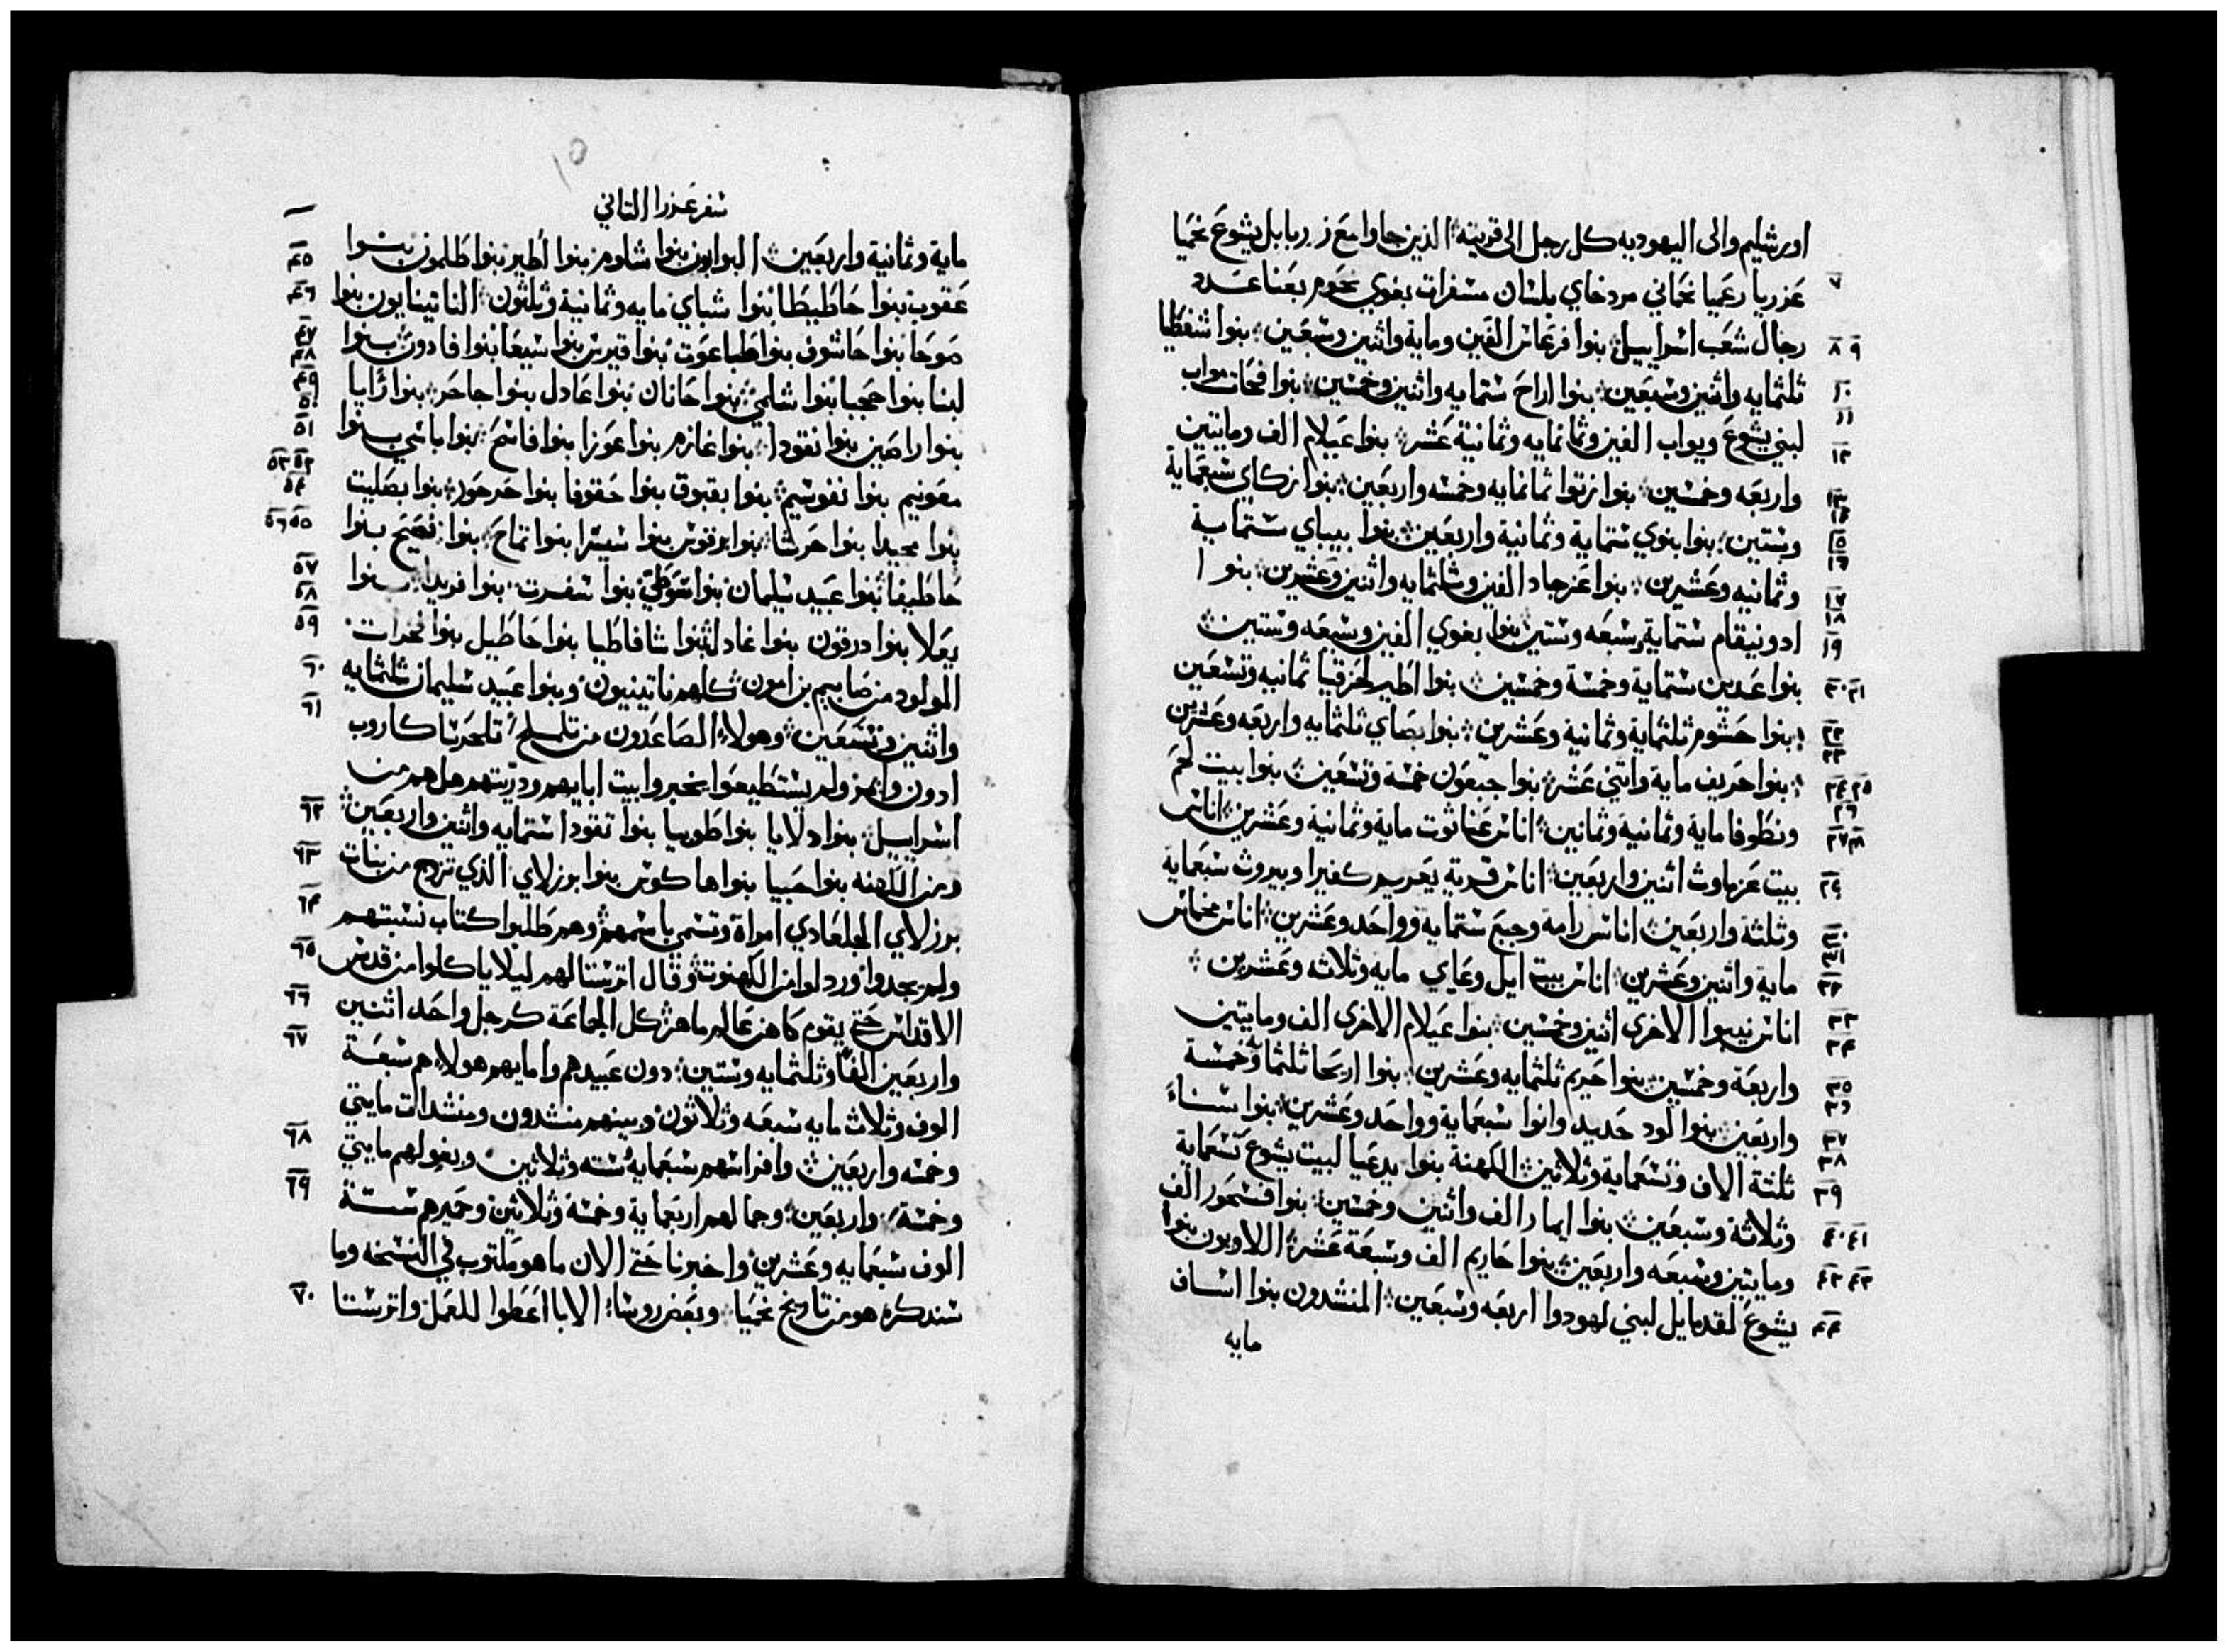 اورشليم والى اليهوديه كل رجل الى قريته الذين جاوا مع زربابل يشوع نحميا
٧ عزريا رعميا نحماني مردخاي بلشان مسفرات بغوي نحوم بعنا عدد
٨ ٩ رجال شعب اسراييل بنوا فرعاش الفين وماية واثنين وسبعين بنوا شفطيا
١٠ ثلثمايه واثنين وسبعين بنوا اراح ستمايه واثنين وخمسين بنوا فحات مواب
١١ لبني يشوع ويواب الفين وثمانمايه وثمانية عشر
١٢ بنوا عيلام الف ومايتين
١٣ واربعه وخمسين بنوا زتوا ثمانمايه وخمسه واربعين
١٤ بنوا زكاي سبعماية
١٥ وستين بنوا بنوي ستماية وثمانية واربعين
١٦ بنوا بيباي ستماية
١٧ وثمانيه وعشرين بنوا عزجاد الفين وثلثمايه واثنين وعشرين
١٨ بنوا
١٩ ادونيقام ستماية وسبعه وستين بنوا بغوي الفين وسبعه وستين
٢٠ ٢١ بنوا عدين ستماية وخمسة وخمسين بنوا اطير لحزقيا ثمانيه وتسعين
٢٢ بنوا حشوم ثلثماية وثمانية وعشرين
٢٣ بنوا بصاي ثلثمايه واربعه وعشرين
٢٤ ٢٥ بنوا حريف ماية واثني عشر بنوا جبعون خمسة وتسعين
٢٦ بنوا بيت لحم
٢٧ ٢٨ ونطوفا ماية وثمانية وثمانين اناس عناثوت ماية وثمانية وعشرين اناس
٢٩ بيت عزماوث اثنين واربعين اناس قرية يعريم كفيرا وبيروث سبعماية
٣٠ وثلثة واربعين اناس رامه وجبع ستمايه وواحد وعشرين
٣١ اناس مخماس
٣٢ ماية واثنين وعشرين اناس بيت ايل وعاي مايه وثلاثه وعشرين
٣٣ اناس نيبوا الاخرى اثنين وخمسين
٣٤ بنوا عيلام الاخرى الف ومايتين
٣٥ واربعة وخمسين بنوا حريم ثلثمايه وعشرين
٣٦ بنوا اريحا ثلثماية وخمسة
٣٧ واربعين بنوا لود حديد وانوا سبعماية وواحد وعشرين
٣٨ بنوا سناءَ
٣٩ ثلثة الاف وتسعماية وثلاثين الكهنة بنوا يدعيا لبيت يشوع تسعماية
٤٠ ٤١ وثلاثة وسبعين بنوا ايمار الف واثنين وخمسين بنوا فشحور الف
٤٢ ٤٣ ومايتين وسبعه واربعين بنوا حاريم الف وسبعة عشر اللاويون بنوا
٤٤ يشوع لقدمايل لبني لهودوا اربعه وسبعين المنشدون بنوا اساف
مايه
سفر عزرا الثاني
٤٥ ماية وثمانية واربعين البوابون بنوا شلوم بنوا اطير بنوا طلمون بنوا
٤٦ عقوب بنوا حاطيطا بنوا شباي مايه وثمانية وثلثون الناتينايون بنوا
٤٧ ٤٨ صوحا بنوا حاشوف بنوا طباعوت بنوا قيرس بنوا سيعا بنوا فادون بنوا
٤٩ ٥٠ لبنا بنوا حجبا بنوا شلمي بنوا حانان بنوا عادل بنوا جاحر بنوا رايا
٥١ بنوا راصين بنوا نقودا بنوا غازم بنوا عوزا بنوا فاسح بنوا باسي بنوا
٥٢ ٥٣ معونيم بنوا نفوسيم بنوا بقبوق بنوا حقوفا بنوا حرحور
٥٤ بنوا بصليت
٥٥ ٥٦ بنوا محيدا بنوا حرشا بنوا برقوس بنوا سيسرا بنوا تماح بنوا نصيح بنوا
٥٧ حاطيفا بنوا عبيد سليمان بنوا سوطي بنوا سفرت بنوا فريدا بنوا
٥٨ ٥٩ يعلا بنوا درقون بنوا غادل بنوا شافاطيا بنوا حاطيل بنوا فخرات
٦٠ المولود من صابيم بن امون كلهم ناتينيون وبنوا عبيد سليمان ثلثمايه
٦١ واثنين وتسعين وهولاء الصاعدون من تلملح تلحرسا كاروب
ادون وايمر ولم يستطيعوا يخبروا بيت ابايهم وذريتهم هل هم من
٦٢ اسراييل بنوا دلايا بنوا طوبيا بنوا نقودا ستمايه واثنين واربعين
٦٣ ومن الكهنه بنوا حبيا بنوا هاكوس بنوا بورزلاي الذي تزوج من بنات
٦٤ بورزلاي الجلعادي امراة وتسمي باسمهم وهم طلبوا كتاب نسبتهم
٦٥ ولم يجدوا ورذلوا من الكهنوت وقال اترسثا لهم ليلا ياكلوا من قدس
٦٦ الاقداس حتي يقوم كاهن عالم ماهر كل الجماعة كرجل واحد اثنين
٦٧ واربعين الفا وثلثمايه وستين دون عبيدهم وامايهم هولاء هم سبعة
الوف وثلاث مايه سبعه وثلاثون وبينهم منشدون ومنشدات مايتي
٦٨ وخمسه واربعين وافراسهم سبعماية ستة وثلاثين وبغولهم مايتي
٦٩ وخمسة واربعين وجمالهم اربعماية وخمسة وثلاثين وحميرهم ستة
الوف سبعمايه وعشرين واخبرنا حتي الان ما هو مكتوب في النسخه وما
٧٠ سنذكره هو من تاريخ نحميا وبعض روسا الابا اعطوا للعمل واترستا